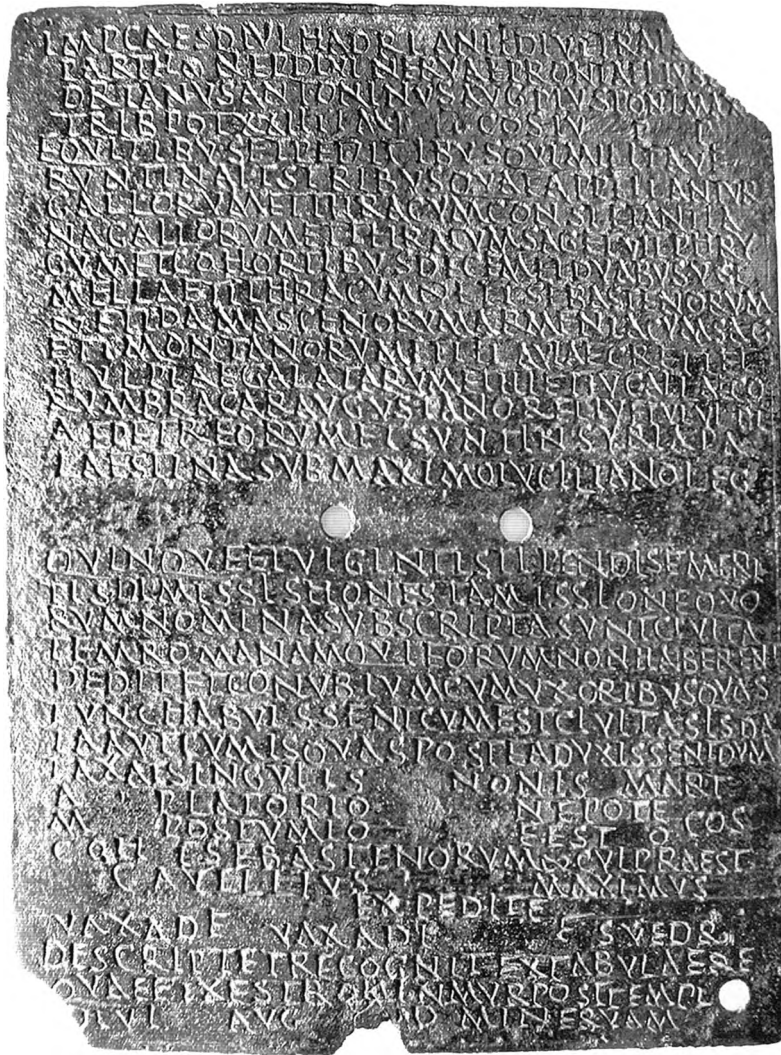 IMP CAES DIVI HADRIANI F DIVI TRAI
PARTHIC NEP DIVI NERVAE PRONT AELIVS
DRIANVS ANTONINVS AVG PIVS PONT MA
TRIB POT XXIII IMP II COS IV P P
EQVITIBVS ET PEDITIBVS QVI MILITAVE
RVNT IN ALIS TRIBVS QVAE APPELLANTVR
GALLORVM ET THRACVM CONSTANTIA
NA GALLORVM ET THRACVM SAG ET VII PHRY
GVM ET COHORTIBVS DECEM ET DVABVS V SE
M ET I DAMASCENORVM ARMENIACVM SAG
ET I MONTANORVM ET I FLAVIA C R ET I ET
II VLPIAE GALATARVM ET III ET IV CALLAECO
RVM BRACARAVGVSTANOR ET IV ET VI VLPI
AE PETREORVM ET SVNT IN SYRIA PA
LAESTINA SVB MAXIMO LVCILIANO LEG
QVINQVE ET VIGINTI STIPENDIS EMERI
TIS DIMISSIS HONESTA MISSIONE QVO
RVM NOMINA SVBSCRIPTA SVNT CIVITA
TEM ROMANAM QVI EORVM NON HABEREN
DEDIT ET CONVBIVM CVM VXORIBVS QVAS
TVNC HABVISSENT CVM EST CIVITAS IS DA
TA AVT CVM IS QVAS POSTEA DVXISSENT DVM
TAXAT SINGVLIS NONIS MART
A PLATORIO NEPOTE
M POSTVMIO FESTO COS
COH I SEBASTENORVM ∞ CVI PRAEST
CATELLIVS MAXIMVS
EX PEDITE
VAXADE VAXADI F SVEDR
DESCRIPT ET RECOGNIT EX TABVLA AERE
QVAE FIXA EST ROM IN MVR POST TEMPL
DIVI AVG AD MINERVAM